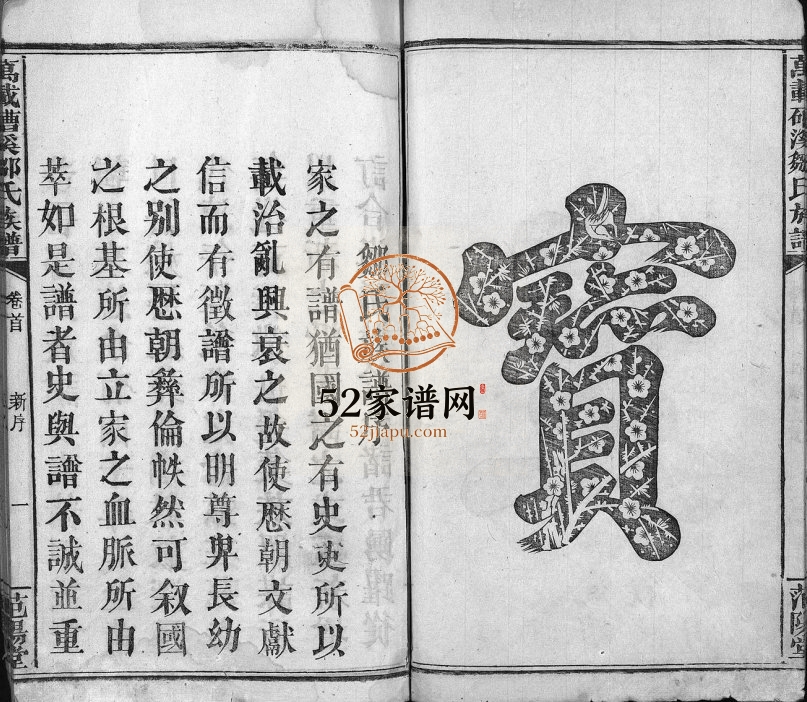 寶
萬載
鄒氏族譜
范陽堂
家之有譜猶國之有史史所以
載治亂興衰之故使厯朝文獻
信而有徵譜所以明尊卑長幼
之别使厯朝彜倫帙然可叙國
之根基所由立家之血脈所由
萃如是譜者史與譜不誠並重
萬載
鄒氏族譜
卷首
新序
一
范陽堂
52家谱网
52jiapu.com